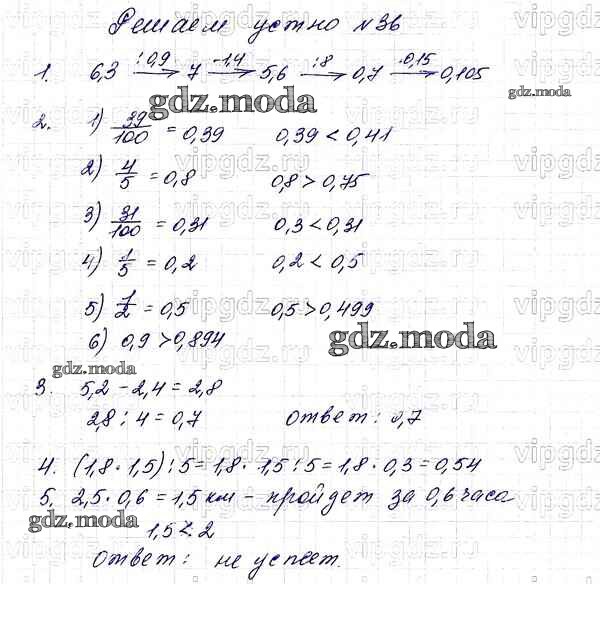 Решаем устно №36
1. 6,3 :0,9→ 7 -1,4→ 5,6 :8→ 0,7 ·0,15→ 0,105
gdz.moda
gdz.moda
2. 1) 39/100 = 0,39 0,39 < 0,41
2) 4/5 = 0,8 0,8 > 0,75
3) 31/100 = 0,31 0,3 < 0,31
4) 1/5 = 0,2 0,2 < 0,5
5) 1/2 = 0,5 0,5 > 0,499
6) 0,9 > 0,894
gdz.moda
gdz.moda
3. 5,2 - 2,4 = 2,8
2,8 : 4 = 0,7 Ответ: 0,7
4. (1,8 · 1,5) : 5 = 1,8 · 1,5 : 5 = 1,8 · 0,3 = 0,54
5. 2,5 · 0,6 = 1,5 км - пройдет за 0,6 часа
gdz.moda
1,5 < 2
Ответ: не успеет.
vipgdz.ru